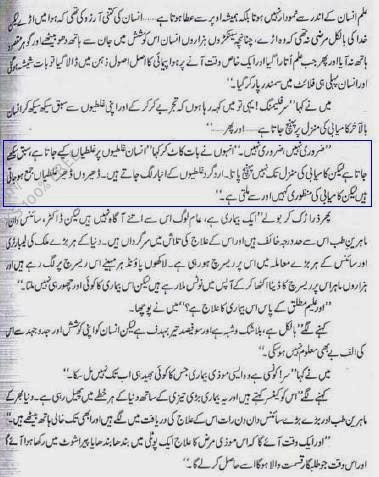 علم انسان کے اندر سے نمودار نہیں ہوتا بلکہ ہمیشہ اوپر سے عطا ہوتا ہے......انسان کی کتنی آرزو تھی کہ ہوا میں اڑے لیکن
خدا کی بالکل مرضی نہ تھی کہ وہ اڑے، چنانچہ سینکڑوں ہزاروں انسان اس کوشش میں جان سے ہاتھ دھو بیٹھے اور گوہر مقصود
ہاتھ نہ آیا اور پھر جب علم اتارا گیا اور ایک خاص وقت آنے پر ہوا پیمائی کا اصل اصول ذہن میں ڈالا گیا تو بات ہمیشہ ہو گئی
اور انسان پہلی ہی فلائٹ میں سمندر پار کر گیا۔"
میں نے کہا "سر فلیمنگ! یہی تو میں کہہ رہا ہوں کہ تجربے کر کر کے اور اپنی غلطیوں سے سبق سیکھ سیکھ کر انسان
بالآخر کامیابی کی منزل پر پہنچ جاتا ہے......اور پھر......"
"ضروری نہیں، ضروری نہیں۔" انہوں نے بات کاٹ کر کہا "انسان غلطیوں پر غلطیاں کیے جاتا ہے، سبق سیکھے
جاتا ہے لیکن کامیابی کی منزل تک نہیں پہنچ پاتا۔ ارد گرد غلطیوں کے انبار لگ جاتے ہیں۔ ڈھیروں ڈھیر غلطیاں جمع ہو جاتی
ہیں کامیابی کی منظوری کہیں اور سے ملتی ہے۔"
پھر ذرا رک کر بولے "ایک بیماری ہے، عام لوگ اس سے اتنے آگاہ نہیں ہیں لیکن ڈاکٹر، سائنس دان
ماہرین طب اس سے حد درجہ خائف ہیں اور اس کے علاج کی تلاش میں سرگرداں ہیں۔ دنیا کے ہر بڑے ملک کی لیبارٹری
اور سائنس کے ہر بڑے معاملہ میں اس پر ریسرچ ہو رہی ہے۔ لاکھوں پاؤنڈ ہر مہینے اس ریسرچ پر لگ رہے ہیں اور
ہزاروں ماہر اس پر ریسرچ کا ڈیٹا اکٹھا کر کے آپس میں نوٹس ملا رہے ہیں لیکن اس بیماری کا کوئی اور چھور ہی نہیں ملتا۔"
"اور علیم مطلق کے پاس اس بیماری کا علاج ہے؟" میں نے پوچھا۔
کہنے لگے "بالکل ہے، بلاشک وشبہ ہے اور سو فیصد تیر بہدف ہے لیکن انسان کو اپنی کوشش اور جدوجہد سے اس
کی الف ب بھی معلوم نہیں ہو سکی۔"
میں نے کہا "سر! کونسی ہے وہ ایسی موذی بیماری جس کا کوئی بھید ہی اب تک نہیں مل سکا۔"
کہنے لگے "اس کو کینسر کہتے ہیں اور یہ بیماری بڑی تیزی کے ساتھ دنیا کے ہر خطے میں پھیل رہی ہے۔ دنیا بھر کے
ماہرین طب اور بڑے بڑے سائنس دان دن رات اس کے علاج کی دریافت میں لگے ہیں اور ابھی تک خالی ہاتھ بیٹھے ہیں۔"
"اور ایک وقت آئے گا کہ اس موذی مرض کا علاج ایک پوٹلی میں بندھا بندھایا پیراشوٹ میں رکھا ہوا آئے گا
اور اس وقت جو طلبگار قسمت والا ہوگا اسے حاصل کر لے گا۔"
100%